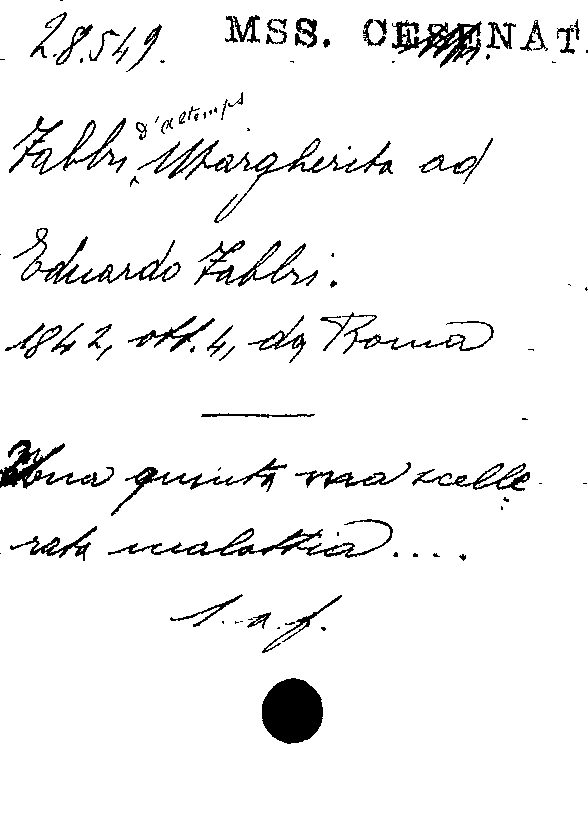 28.549. MSS. CESENAT.
d'altemps
Fabbri, Margherita ad
Eduardo Fabbri.
1842, ott. 4, da Roma
Una quinta ma scelle
rata malattia....
l. a. f.